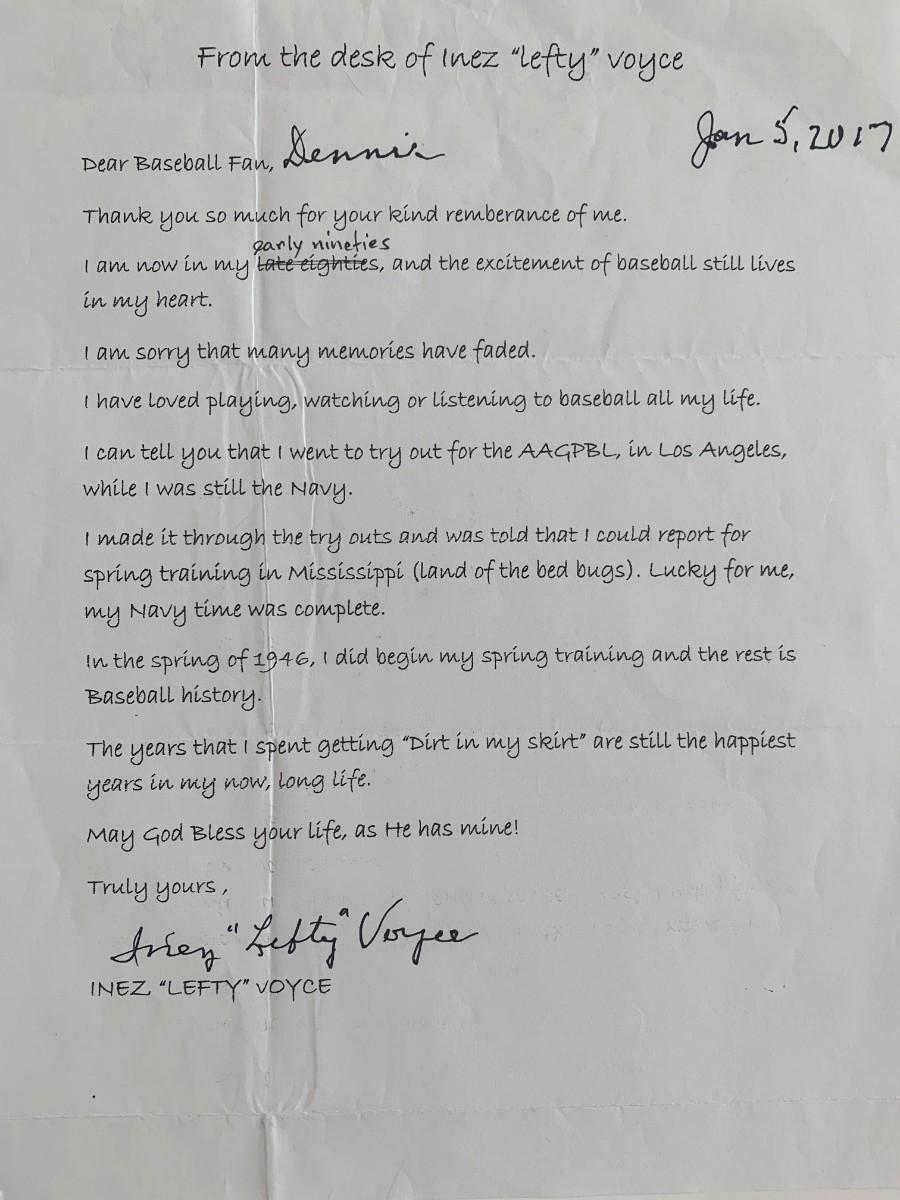 From the desk of Inez "lefty" voyce
Jan 5, 2017
Dear Baseball Fan, Dennis
Thank you so much for your kind remberance of me.
early nineties
I am now in my late eighties, and the excitement of baseball still lives
in my heart.
I am sorry that many memories have faded.
I have loved playing, watching or listening to baseball all my life.
I can tell you that I went to try out for the AAGPBL, in Los Angeles,
while I was still the Navy.
I made it through the try outs and was told that I could report for
spring training in Mississippi (land of the bed bugs). Lucky for me,
my Navy time was complete.
In the spring of 1946, I did begin my spring training and the rest is
Baseball history.
The years that I spent getting "Dirt in my skirt" are still the happiest
years in my now, long life.
May God Bless your life, as He has mine!
Truly yours,
Inez "Lefty" Voyce
INEZ "LEFTY" VOYCE